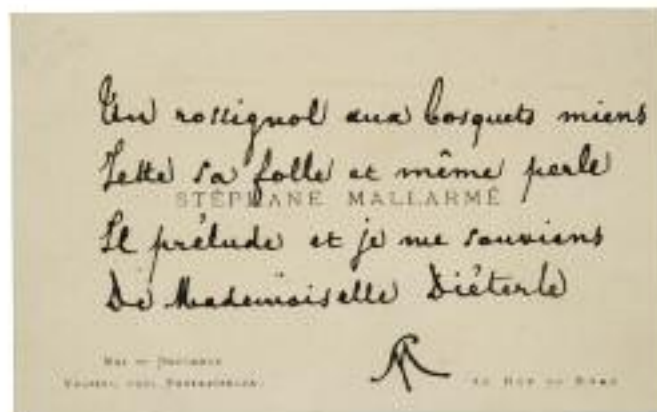 Un rossignol aux bosquets miens
Jette sa folle et même perle
STÉPHANE MALLARMÉ
Il prélude et je me souviens
De Mademoiselle Diéterle
Mai — Novembre